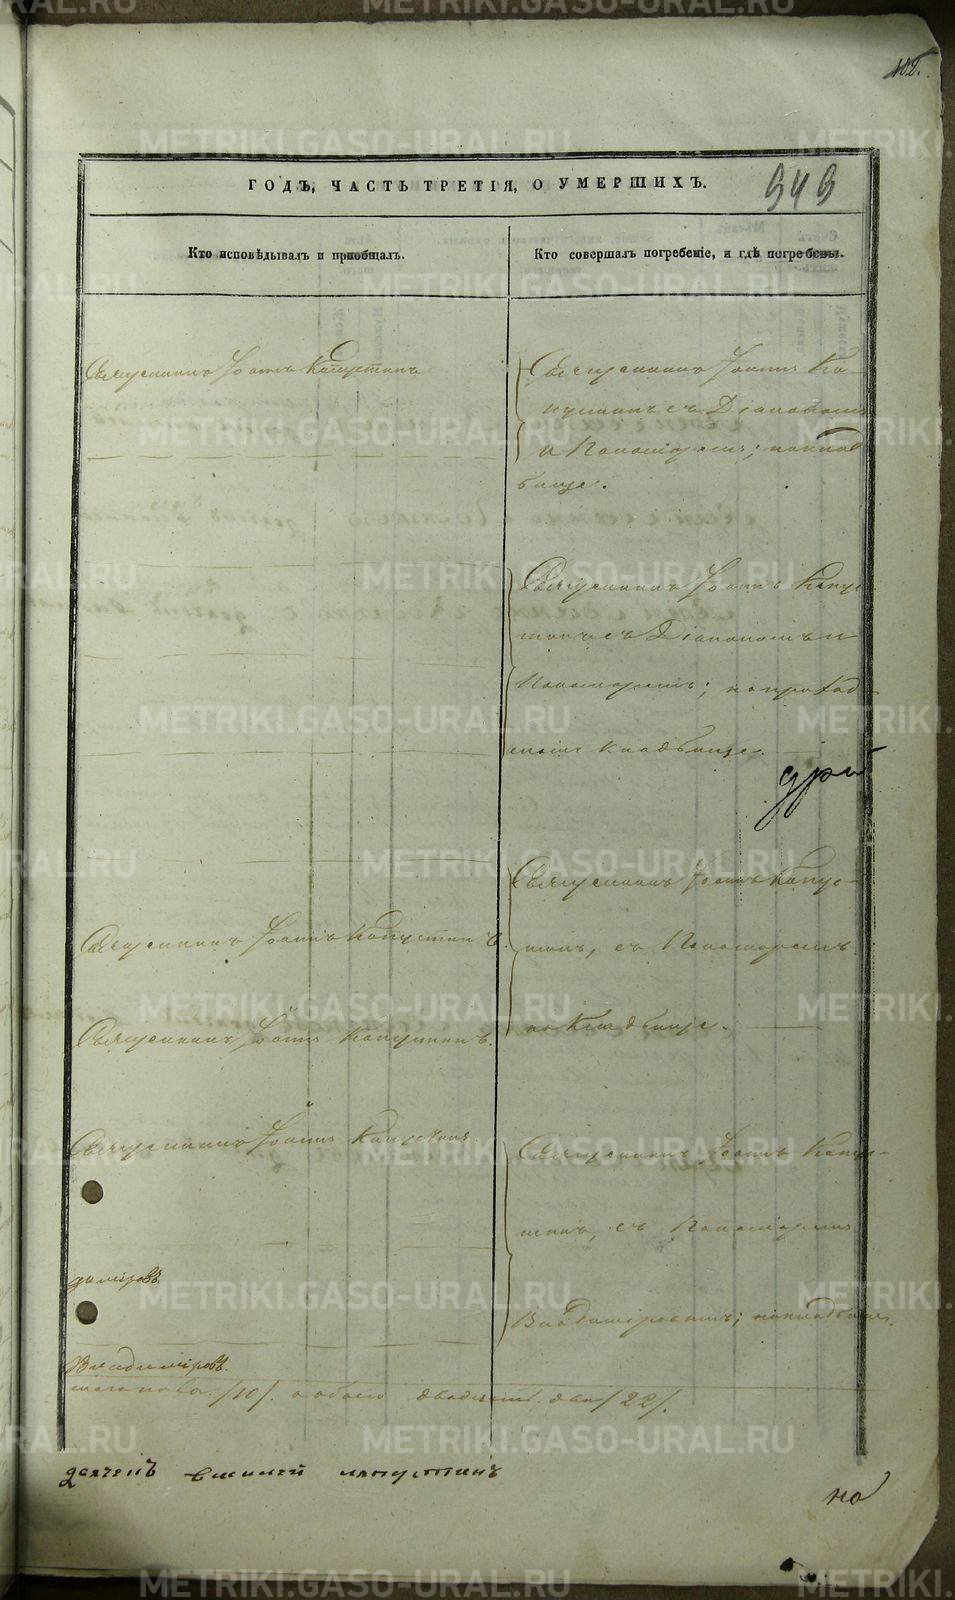 102.
ГОДЪ, ЧАСТЬ ТРЕТІЯ, О УМЕРШИХЪ.
949
Кто исповѣдывалъ и пріобщалъ.
Кто совершалъ погребеніе, и гдѣ погребены.
Священникъ Іоаннъ Капустинъ
Священникъ Іоаннъ Ка-
пустинъ съ Діакономъ
и Пономаремъ; на клад
бище.
Священникъ Іоаннъ Капус
тинъ съ Діакономъ и
Пономаремъ; на приход
комъ кладбище.
Священникъ Іоаннъ Капус-
тинъ, съ Пономаремъ
на Кладбище.
Священникъ Іоаннъ Капустинъ.
Священникъ Іоаннъ Капустинъ.
Священникъ Іоаннъ Капустинъ
Священникъ Іоаннъ Капус-
тинъ, съ Пономаремъ
Владиміровымъ; на кладбище.
димировъ.
Владиміровъ.
пола /10/. а обоего двадцать два /22/.
Капустинъ
но
METRIKI.GASO-URAL.RU